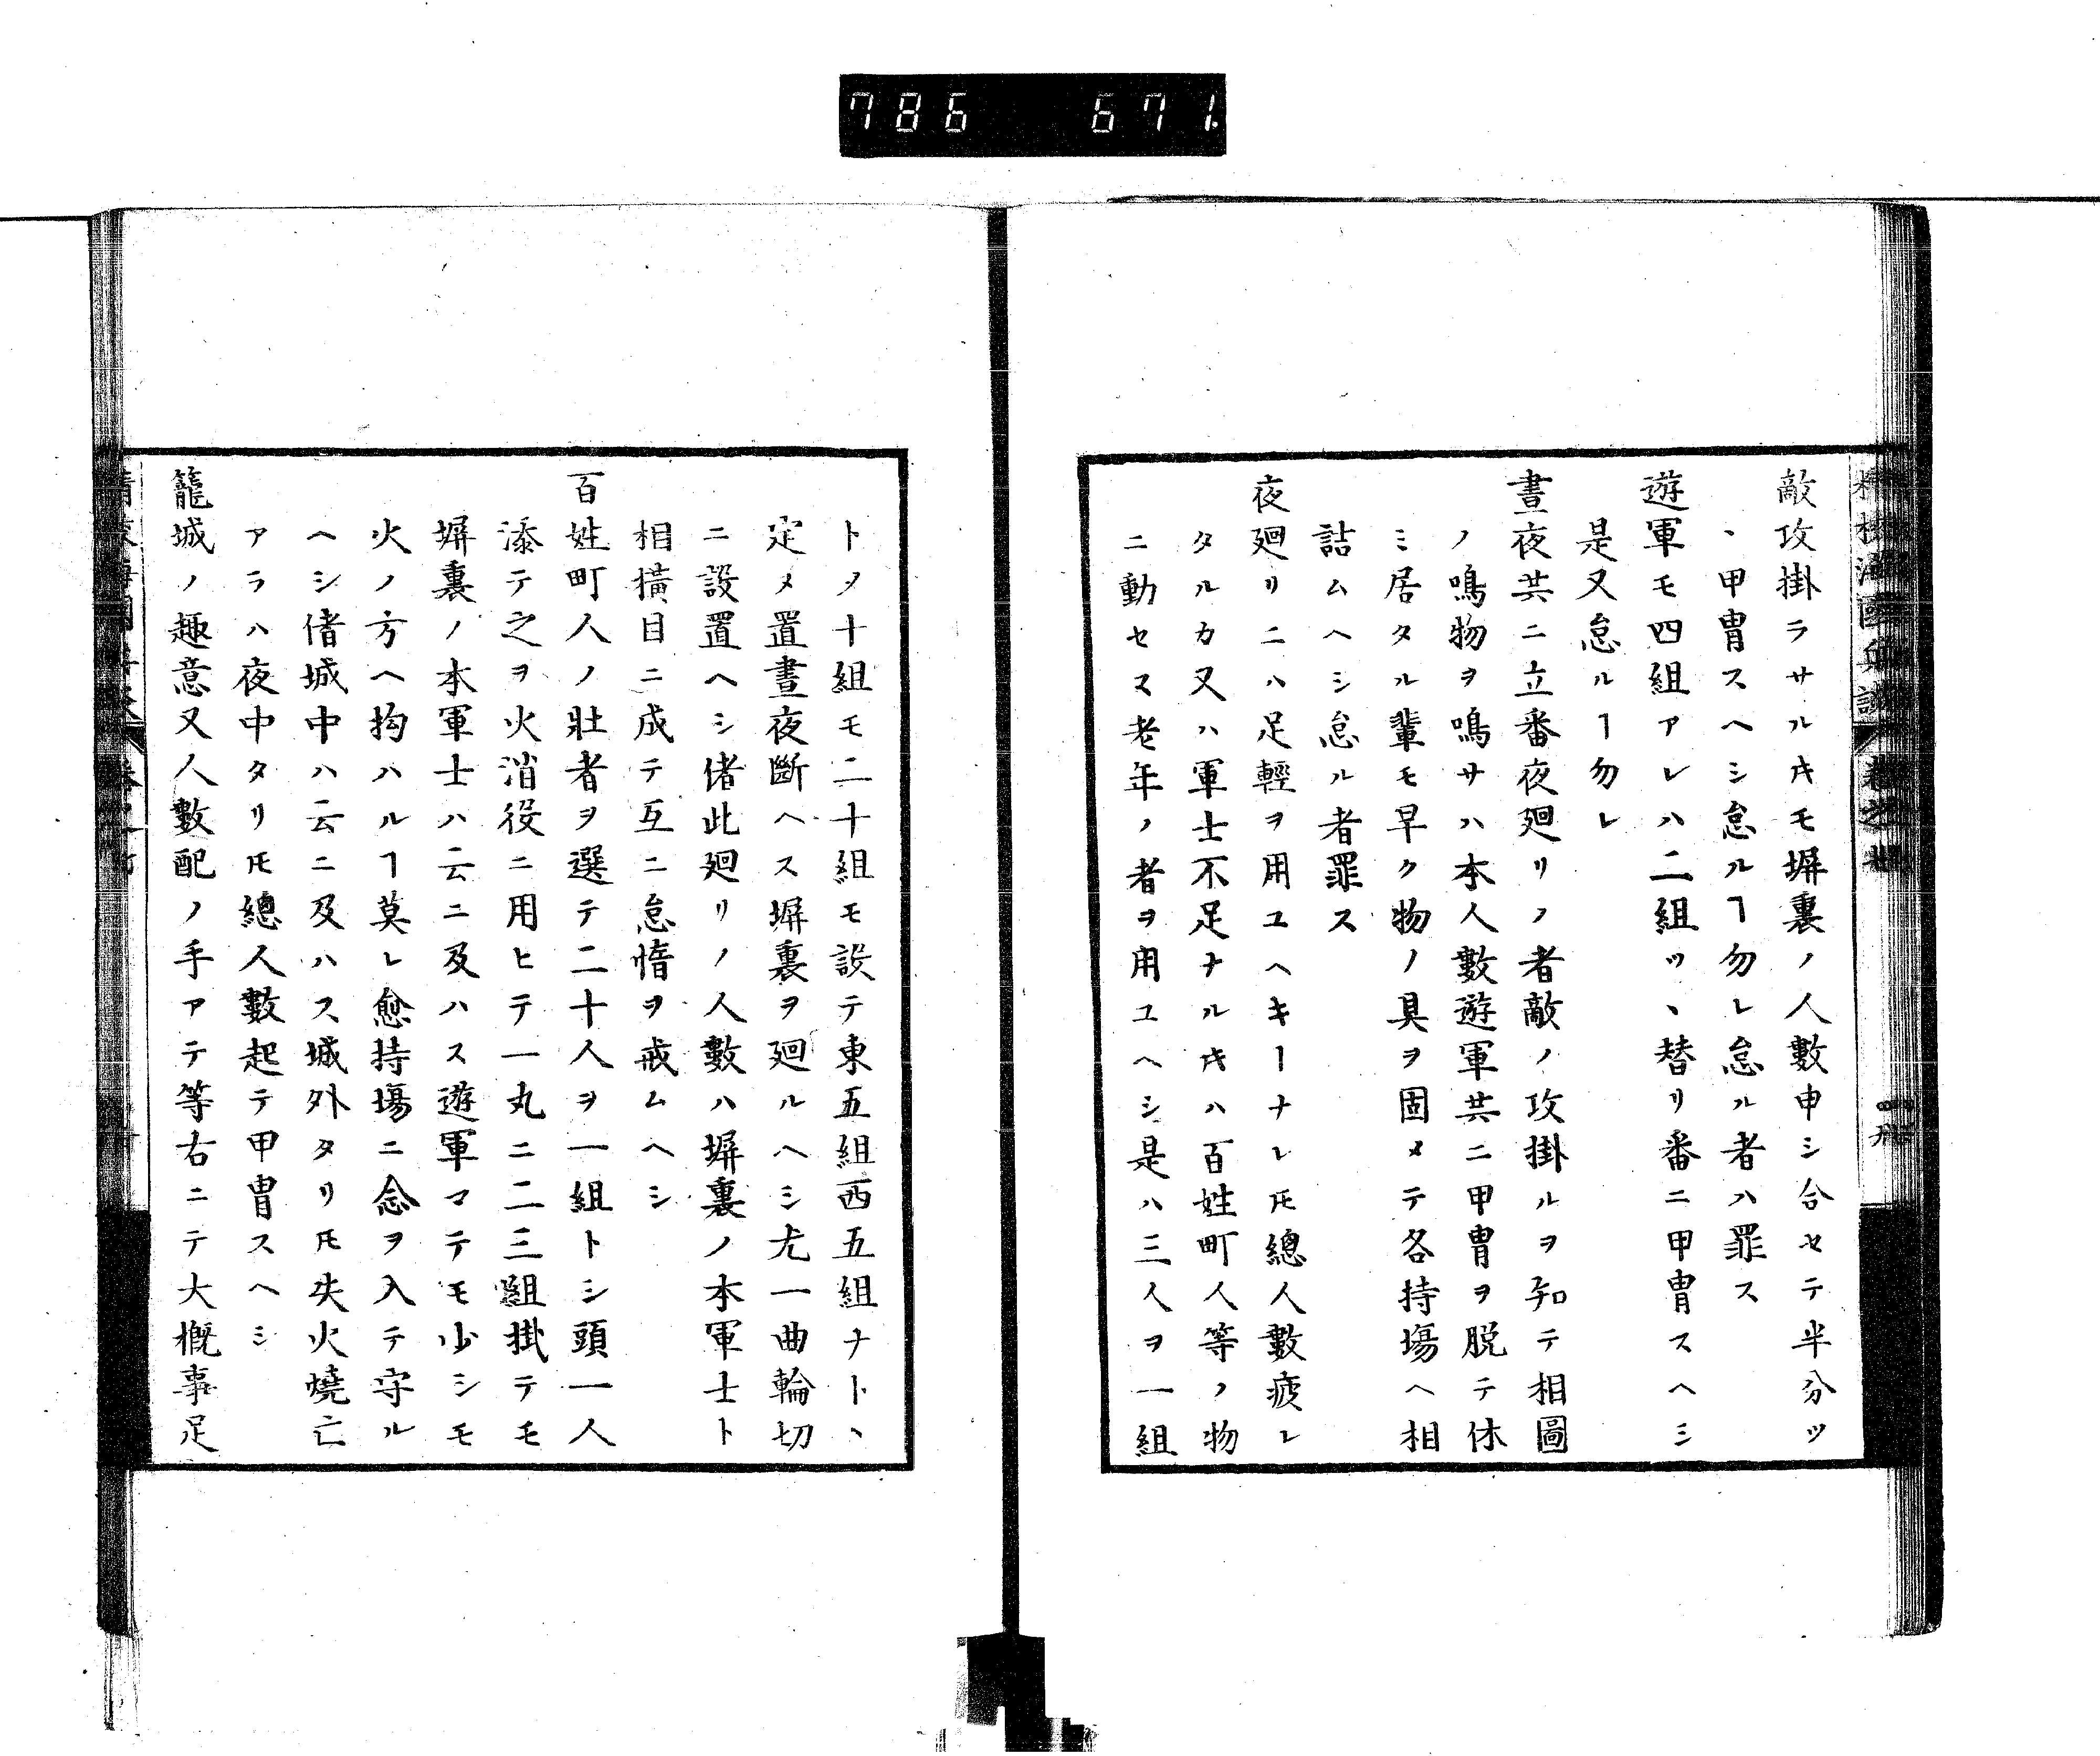 786 671
敵攻掛ラサルキモ塀裏ノ人數申シ合セテ半分ッ
、甲冑スヘシ怠ルヿ勿レ怠ル者ハ罪ス
遊軍モ四組アレハ二組ッ、替リ番ニ甲冑スヘシ
是又怠ルヿ勿レ
晝夜共ニ立番夜廻リノ者敵ノ攻掛ルヲ知テ相圖
ノ鳴物ヲ鳴サハ本人數遊軍共ニ甲冑ヲ脱テ休
ミ居タル輩モ早ク物ノ具ヲ固メテ各持場ヘ相
詰ムヘシ怠ル者罪ス
夜廻リニハ足輕ヲ用ユヘキヿナレ𪜈總人數疲レ
タルカ又ハ軍士不足ナルキハ百姓町人等ノ物
ニ動セヌ老年ノ者ヲ用ユヘシ是ハ三人ヲ一組
トメ十組モ二十組モ設テ東五組西五組ナト、
定メ置晝夜斷ヘス塀裏ヲ廻ルヘシ尤一曲輪切
ニ設置ヘシ偖此廻リノ人數ハ塀裏ノ本軍士ト
相橫目ニ成テ互ニ怠惰ヲ戒ムヘシ
百姓町人ノ壯者ヲ選テ二十人ヲ一組トシ頭一人
添テ之ヲ火消役ニ用ヒテ一丸ニ二三組掛テモ
塀裏ノ本軍士ハ云ニ及ハス遊軍マテモ少シモ
火ノ方ヘ拘ハルヿ莫レ愈持場ニ念ヲ入テ守ル
ヘシ偖城中ハ云ニ及ハス城外タリ𪜈失火燒亡
アラハ夜中タリ𪜈總人數起テ甲冑スヘシ
籠城ノ趣意又人數配ノ手アテ等右ニテ大概事足